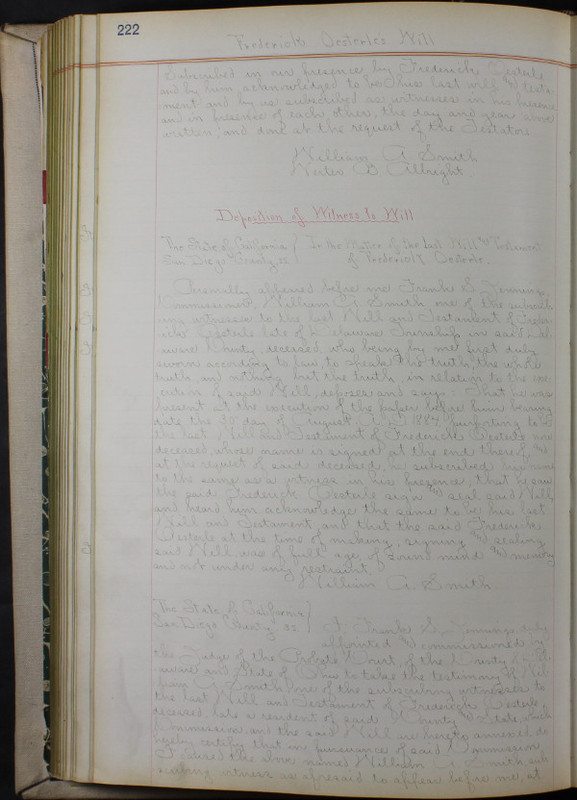 222
Frederick Oesterle's Will
Subscribed in our presence by Frederick Oesterle
and by him acknowledged to be his last will and testa-
ment and by us subscribed as witnesses in his presence
and in presence of each other, the day and year above
written, and done at the request of the Testator
William A. Smith
B Albright
Deposition of Witness to Will
The State of California / In the Matter of the Last Will & Testament
San Diego County, ss / of Frederick Oesterle.
Personally appeared before me Frank S. Jennings,
Commissioner, William A. Smith one of the subscrib-
ing witnesses to the last Will and Testament of Freder-
ick Oesterle late of Delaware Township in said Del-
aware County, deceased, who being by me first duly
sworn according to law, to speak the truth, the whole
truth, and nothing but the truth, in relation to the exe-
cution of said Will, deposes and says: That he was
present at the execution of the paper before him bearing
date the day of August A.D. 1887, purporting to be
the last Will and Testament of Frederick Oesterle now
deceased, whose name is signed at the end thereof, and
at the request of said deceased, he subscribed his name
to the same as a witness in his presence; that he saw
the said Frederick Oesterle sign and seal said Will
and heard him acknowledge the same to be his last
Will and Testament, and that the said Frederick
Oesterle at the time of making, signing and sealing
said Will was of full age, of sound mind and memory
and not under any restraint.
William A. Smith
The State of California /
San Diego County ss / I, Frank S. Jennings, duly
appointed & commissioned by
the Judge of the Probate Court, of the County of Del-
aware and State of Ohio to take the testimony of Wil-
liam A. Smith one of the subscribing witnesses to
the last Will and Testament of Frederick Oesterle,
deceased, late a resident of said County & State, which
Commission and the said Will are hereto annexed do
hereby certify that in pursuance of said Commission
I caused the above named William A. Smith, sub-
scribing witness as aforesaid to appear before me, at